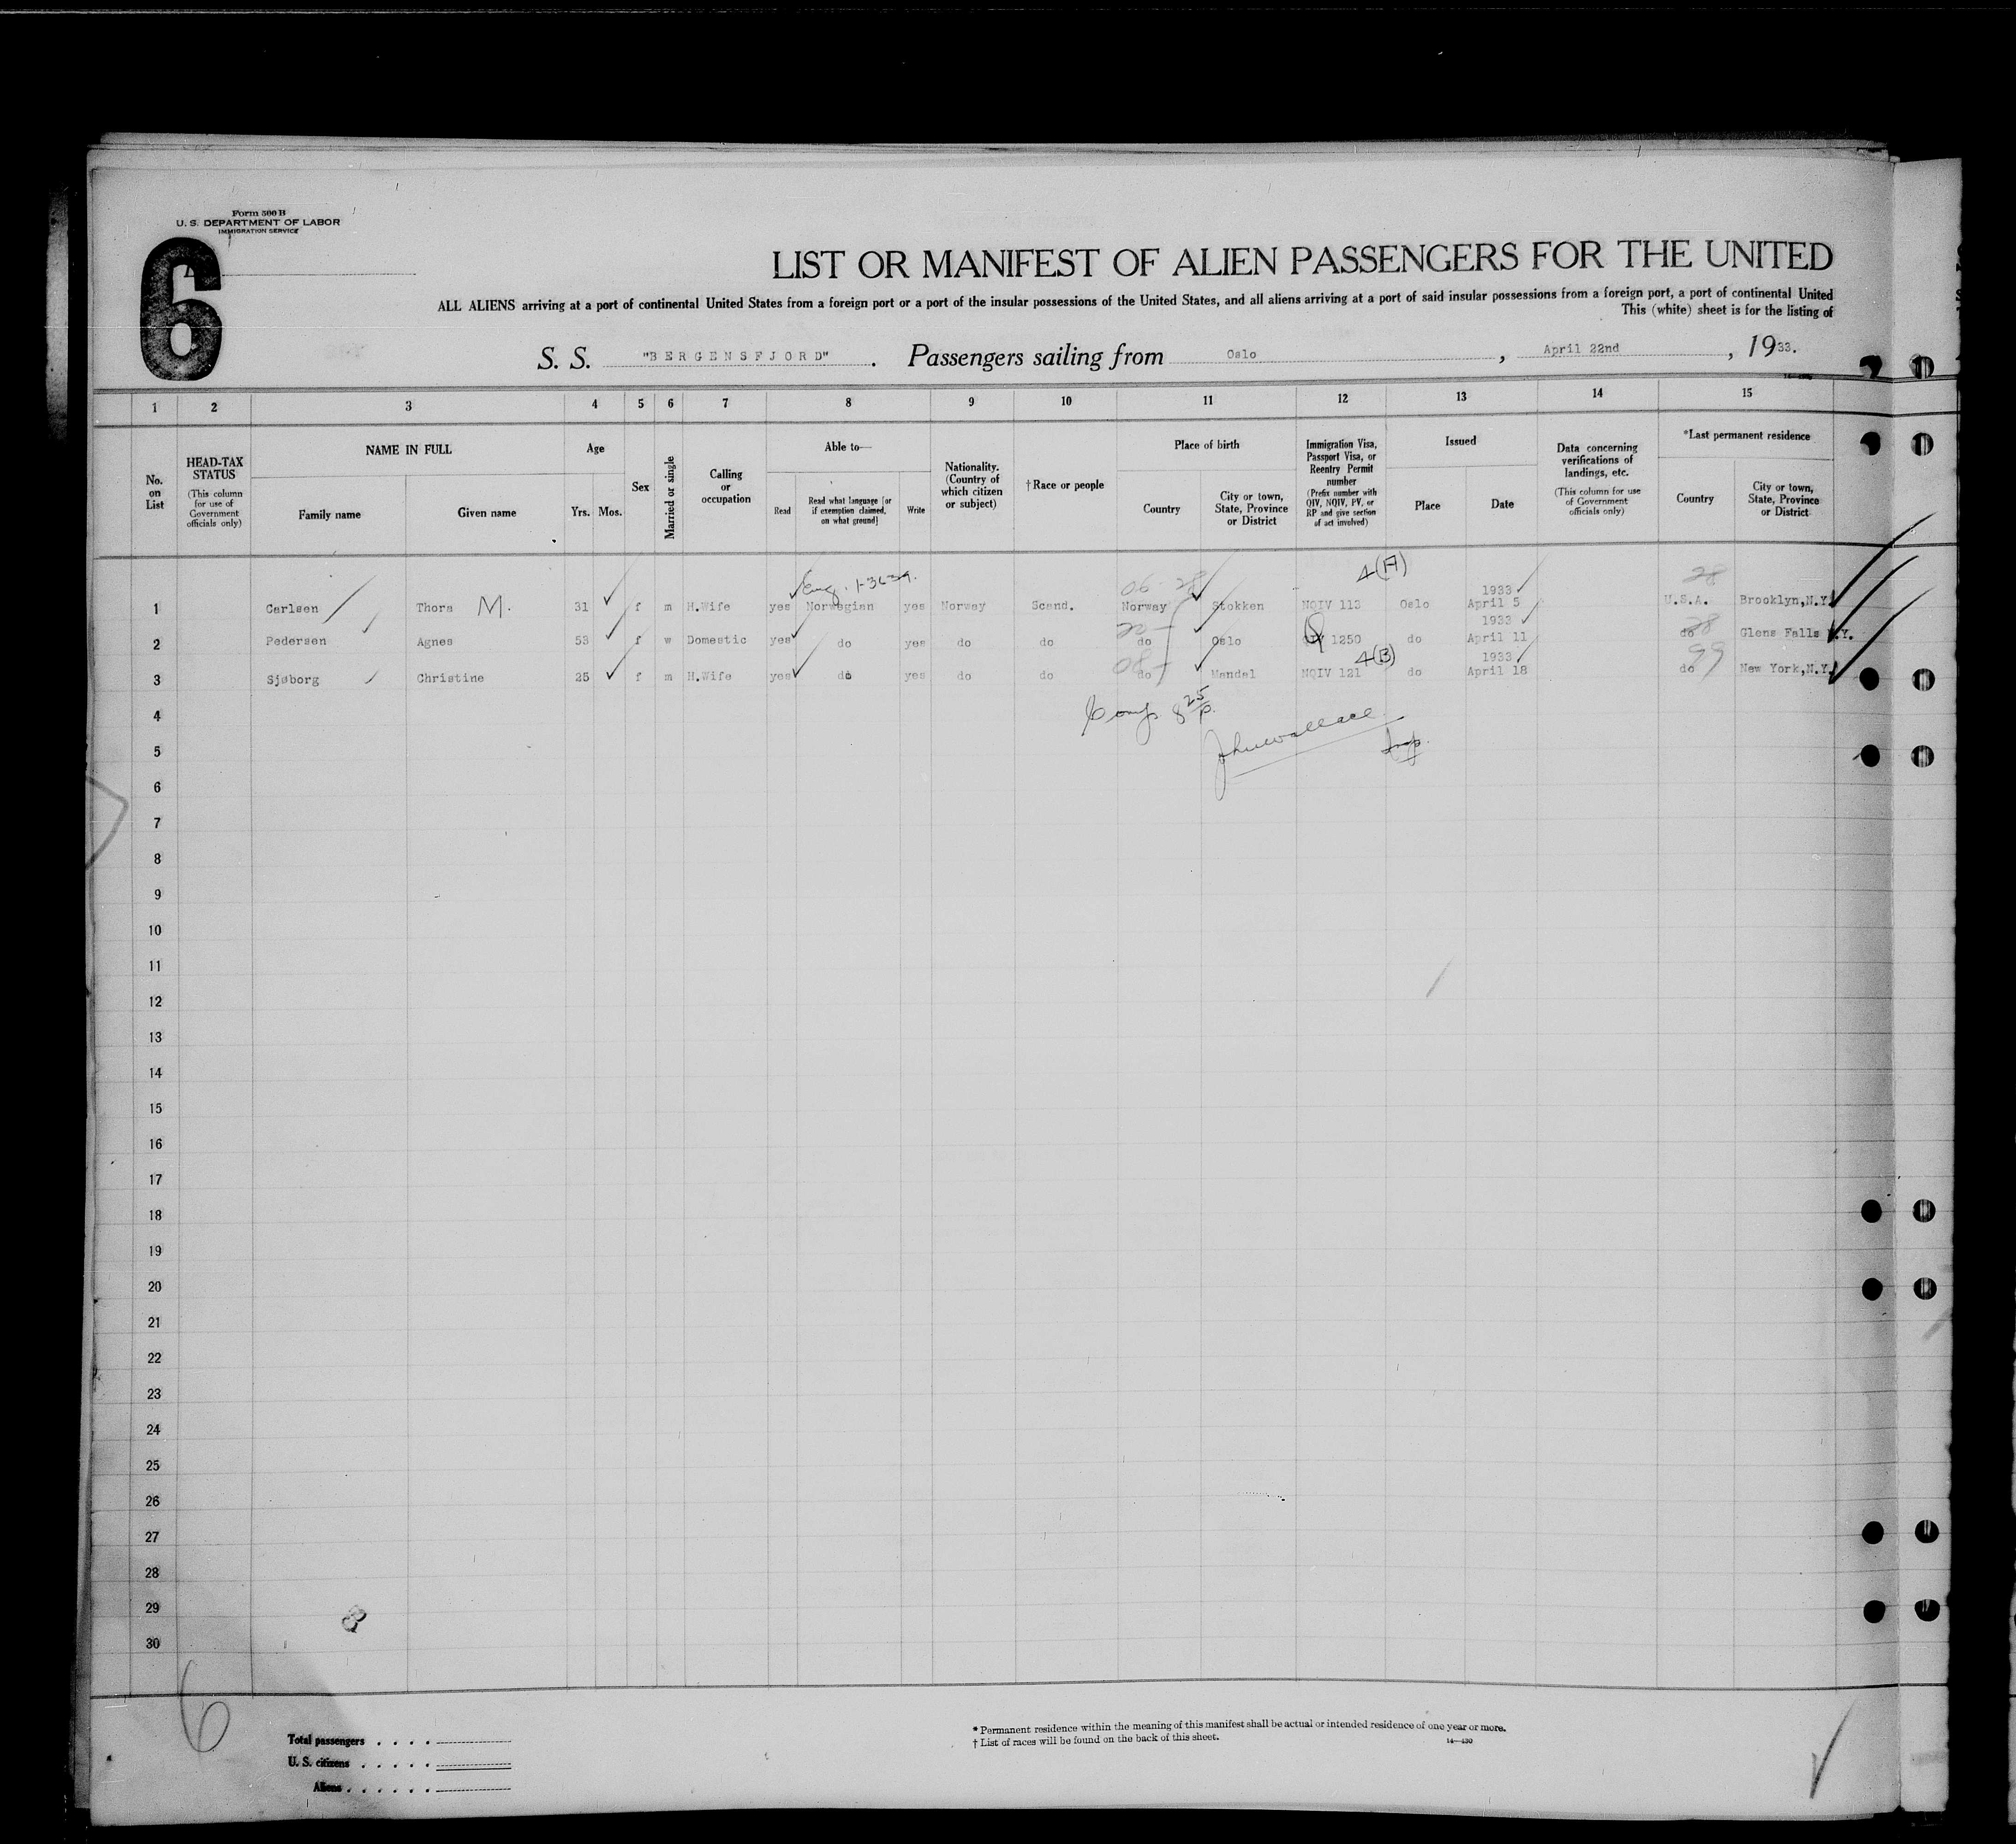 Form 500 B
U. S. DEPARTMENT OF LABOR
IMMIGRATION SERVICE
6
LIST OR MANIFEST OF ALIEN PASSENGERS FOR THE UNITED
ALL ALIENS arriving at a port of continental United States from a foreign port or a port of the insular possessions of the United States, and all aliens arriving at a port of said insular possessions from a foreign port, a port of continental United
This (white) sheet is for the listing of
S. S. "BERGENSFJORD". Passengers sailing from Oslo, April 22nd, 1933.
1 2 3 4 5 6 7 8 9 10 11 12 13 14 15
No. on List
HEAD-TAX STATUS
(This column for use of Government officials only)
NAME IN FULL
Family name
Given name
Age
Yrs. Mos.
Sex
Married or single
Calling or occupation
Able to—
Read
Read what language [or if exemption claimed, on what ground]
Write
Nationality. (Country of which citizen or subject)
†Race or people
Place of birth
Country
City or town, State, Province or District
Immigration Visa, Passport Visa, or Reentry Permit number
(Prefix number with QIV, NQIV, PV, or RP and give section of act involved)
Issued
Place
Date
Data concerning verifications of landings, etc.
(This column for use of Government officials only)
*Last permanent residence
Country
City or town, State, Province or District
Eng. 4(A) 28
1 Carlsen Thora M. 31 f m H.Wife yes Norwegian yes Norway Scand. Norway Stokken NQIV 113 Oslo 1933 April 5 U.S.A. Brooklyn,N.Y.
2 Pedersen Agnes 53 f w Domestic yes do yes do do do Oslo 1250 do 1933 April 11 do Glens Falls N.Y.
4(B) 99
3 Sjøborg Christine 25 f m H.Wife yes do yes do do do Mandal NQIV 121 do 1933 April 18 do New York,N.Y.
4
John Wallace
5
Insp.
6
7
8
9
10
11
12
13
14
15
16
17
18
19
20
21
22
23
24
25
26
27
28
29
30
6
Total passengers . . . .
U. S. citizens . . . . .
Aliens . . . . . .
* Permanent residence within the meaning of this manifest shall be actual or intended residence of one year or more.
† List of races will be found on the back of this sheet.
14—430